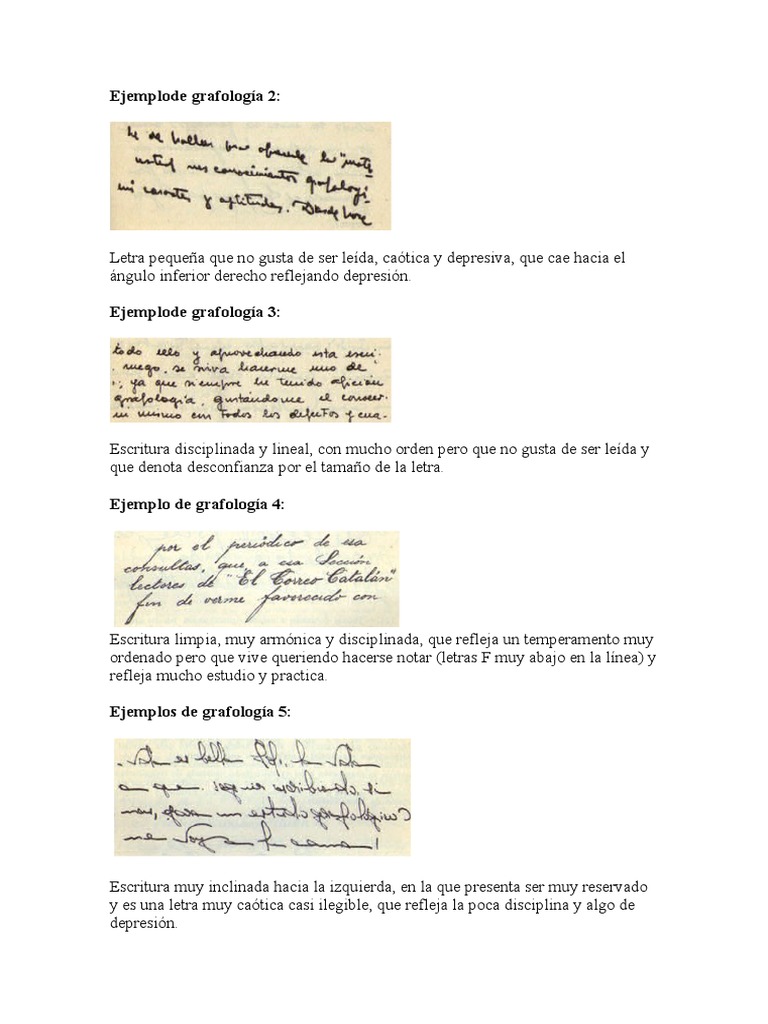 Ejemplode grafología 2:
he de hallar para ofrecerle la "mate
usted sus conocimientos grafologi-
mi caracter y aptitudes. Desde hoy
Letra pequeña que no gusta de ser leída, caótica y depresiva, que cae hacia el
ángulo inferior derecho reflejando depresión.
Ejemplode grafología 3:
todo ello y aprovechando esta escri-
ruego, se sirva hacerme uno de
ya que siempre he tenido afición
grafología, gustándome el conocer
mi mismo con todos los defectos y cua-
Escritura disciplinada y lineal, con mucho orden pero que no gusta de ser leída y
que denota desconfianza por el tamaño de la letra.
Ejemplo de grafología 4:
por el periódico de esa
consultas, que, a esa Sección
lectores de "El Correo Catalán"
fin de verme favorecido con
Escritura limpia, muy armónica y disciplinada, que refleja un temperamento muy
ordenado pero que vive queriendo hacerse notar (letras F muy abajo en la línea) y
refleja mucho estudio y practica.
Ejemplos de grafología 5:
es bella
que seguir escribiendo, si
para un estudio grafológico?
me voy a la cama!
Escritura muy inclinada hacia la izquierda, en la que presenta ser muy reservado
y es una letra muy caótica casi ilegible, que refleja la poca disciplina y algo de
depresión.